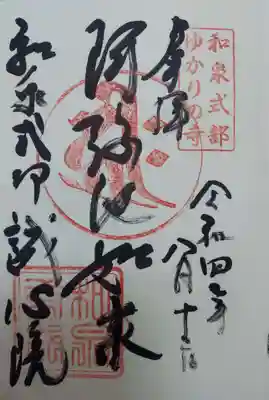 和泉式部
ゆかりの寺
奉拝
令和四年
八月十二日
阿弥陀如来
和泉式部 誠心院